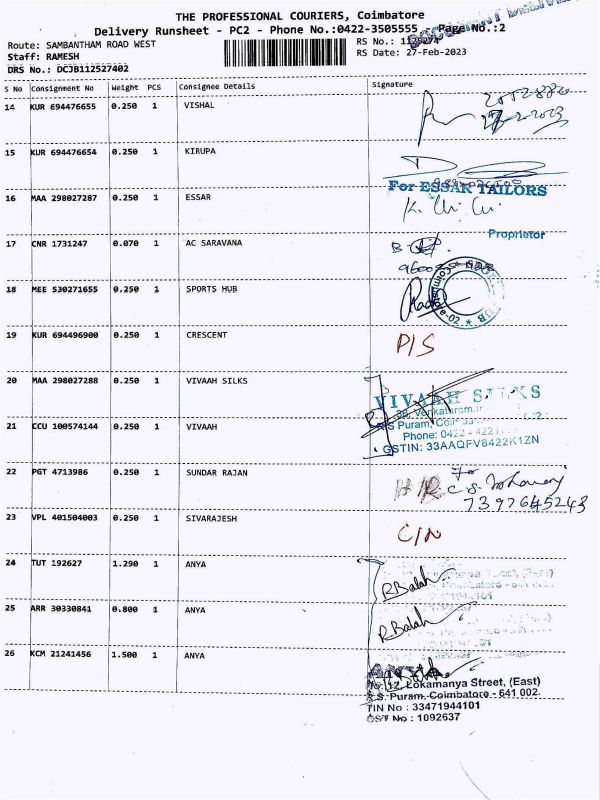 THE PROFESSIONAL COURIERS, Coimbatore
Delivery Runsheet - PC2 - Phone No.:0422-3505555 Page No.:2
Route: SAMBANTHAM ROAD WEST RS No.:
Staff: RAMESH RS Date: 27-Feb-2023
DRS No.: DCJB112527402
S No Consignment No Weight PCS Consignee Details Signature
14 KUR 694476655 0.250 1 VISHAL
15 KUR 694476654 0.250 1 KIRUPA
16 MAA 298027287 0.250 1 ESSAR
For ESSAR TAILORS
Proprietor
17 CNR 1731247 0.070 1 AC SARAVANA
18 MEE 530271655 0.250 1 SPORTS HUB
19 KUR 694496900 0.250 1 CRESCENT P/S
20 MAA 298027288 0.250 1 VIVAAH SILKS
VIVAAH SILKS
R.S Puram,
21 CCU 100574144 0.250 1 VIVAAH
Phone: 0422 -
GSTIN: 33AAQFV8422K1ZN
22 PGT 4713986 0.250 1 SUNDAR RAJAN
For
7397645243
23 VPL 401504003 0.250 1 SIVARAJESH C/N
24 TUT 192627 1.290 1 ANYA R Balah
25 ARR 30330841 0.800 1 ANYA R Balah
26 KCM 21241456 1.500 1 ANYA
12, Lokamanya Street, (East)
R.S. Puram, Coimbatore - 641 002.
TIN No : 33471944101
GST No : 1092637